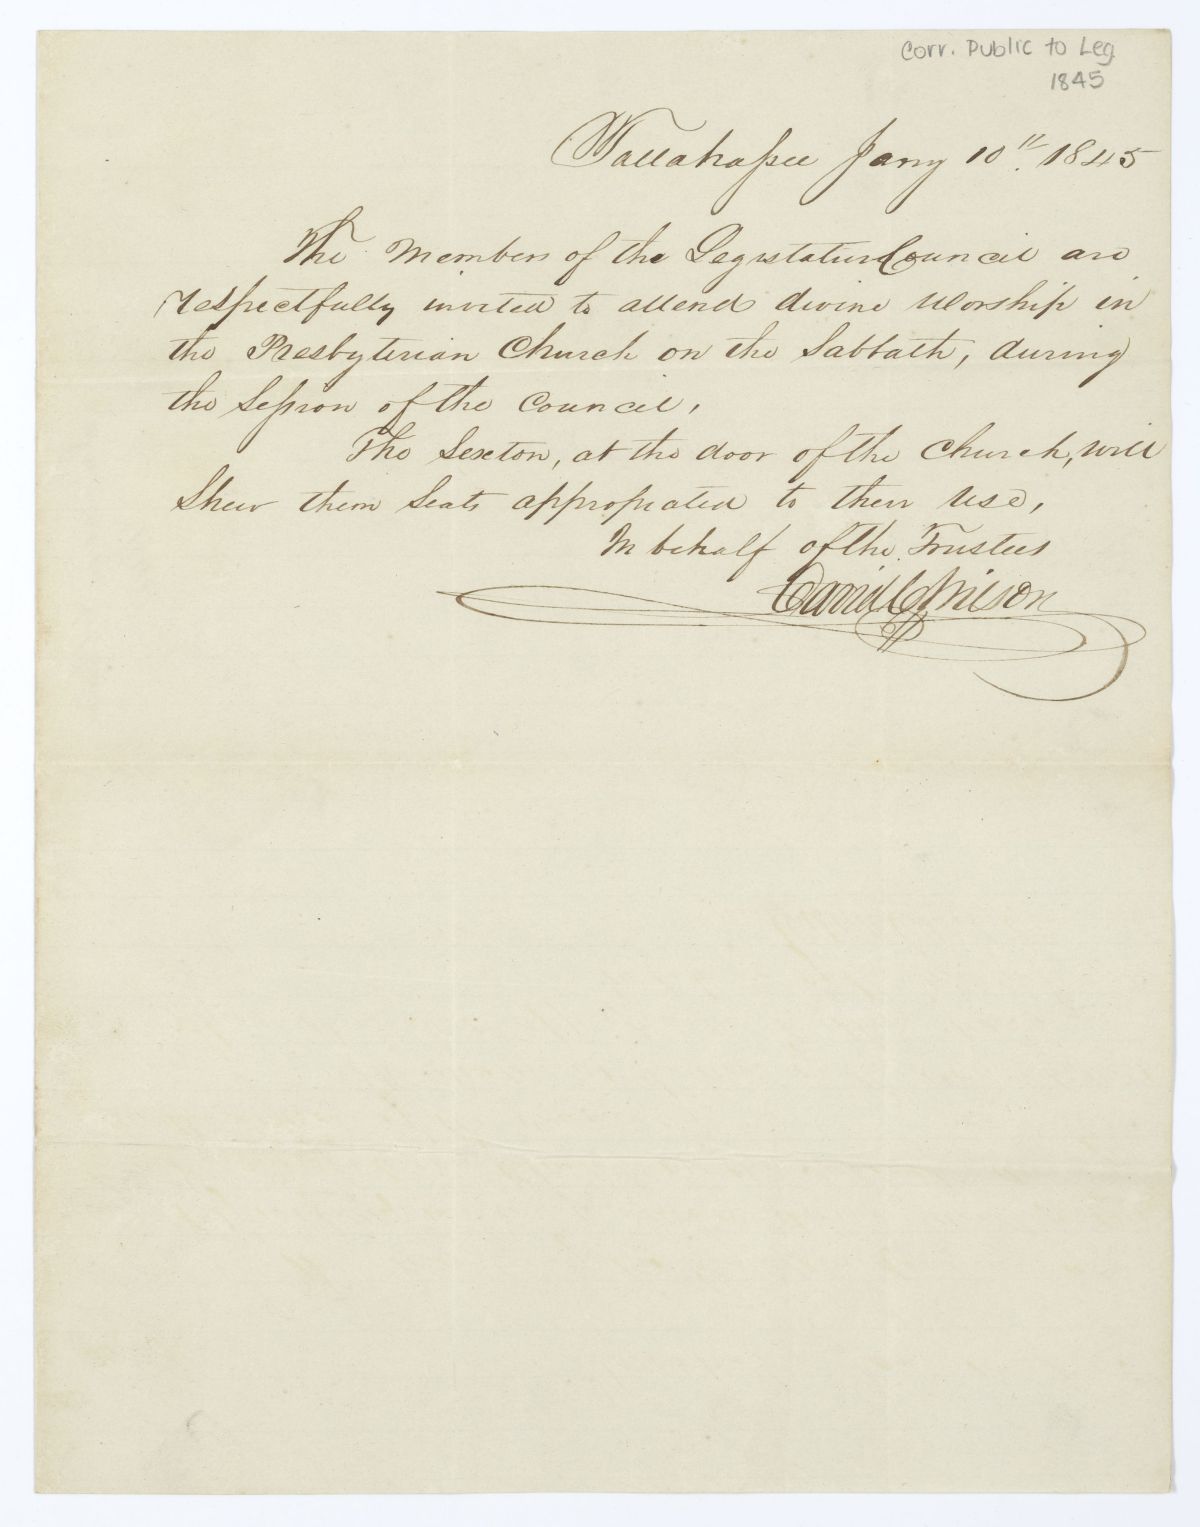 Corr. Public to Leg.
1845
Tallahassee Jany 10th. 1845
The Members of the Legislature Council are
respectfully invited to attend divine Worship in
the Presbyterian Church on the Sabbath, during
the Session of the Council,
The Sexton, at the door of the Church, will
Shew them Seats appropiated to their Use,
In behalf of the Trustees
David C Wilson